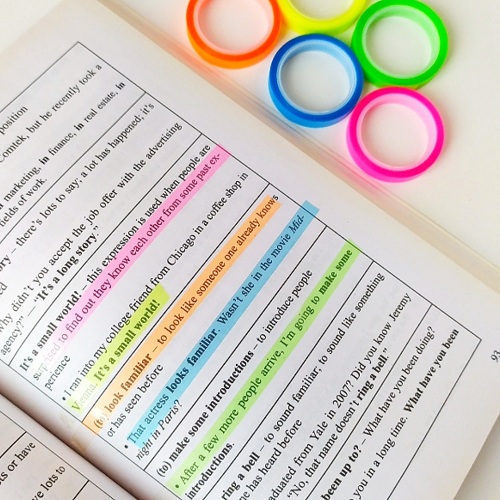 position
Comtek, but he recently took a
marketing, in finance, in real estate, in
fields of work.
ory – there's lots to say; a lot has happened; it's
Why didn't you accept the job offer with the advertising
agency?" – "It's a long story."
It's a small world! – this expression is used when people are
to find out they know each other from some past ex-
perience
• I ran into my college friend from Chicago in a coffee shop in
It's a small world!
(to) look familiar – to look like someone one already knows
or has seen before
• That actress looks familiar. Wasn't she in the movie Mid-
night in Paris?
(to) make some introductions – to introduce people
• After a few more people arrive, I'm going to make some
introductions.
ring a bell – to sound familiar; to sound like something
one has heard before
graduated from Yale in 2007? Did you know Jeremy
"No, that name doesn't ring a bell."
been up to? – What have you been doing?
you in a long time. What have you been
ts or have
lots to